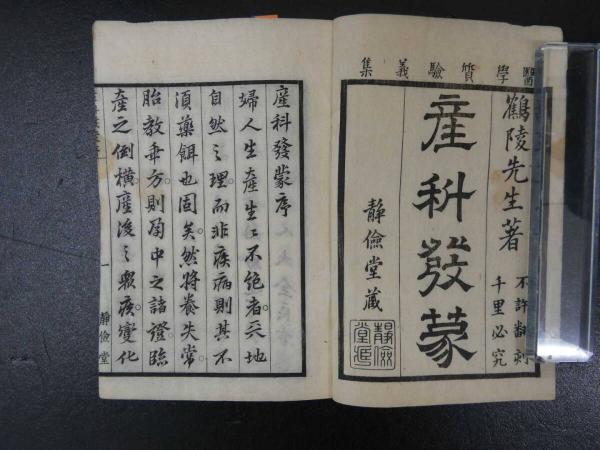 醫學質驗義集
鶴陵先生著
不許翻刻
千里必究
産科發蒙
静儉堂蔵
産科發蒙序
婦人生產生〻不絶者天地
自然之理而非疾病則其不
湏藥餌也固矣然將養失常
胎教乖方則孕中之諸證臨
產之倒橫產後之衆疾變化
一
静儉堂